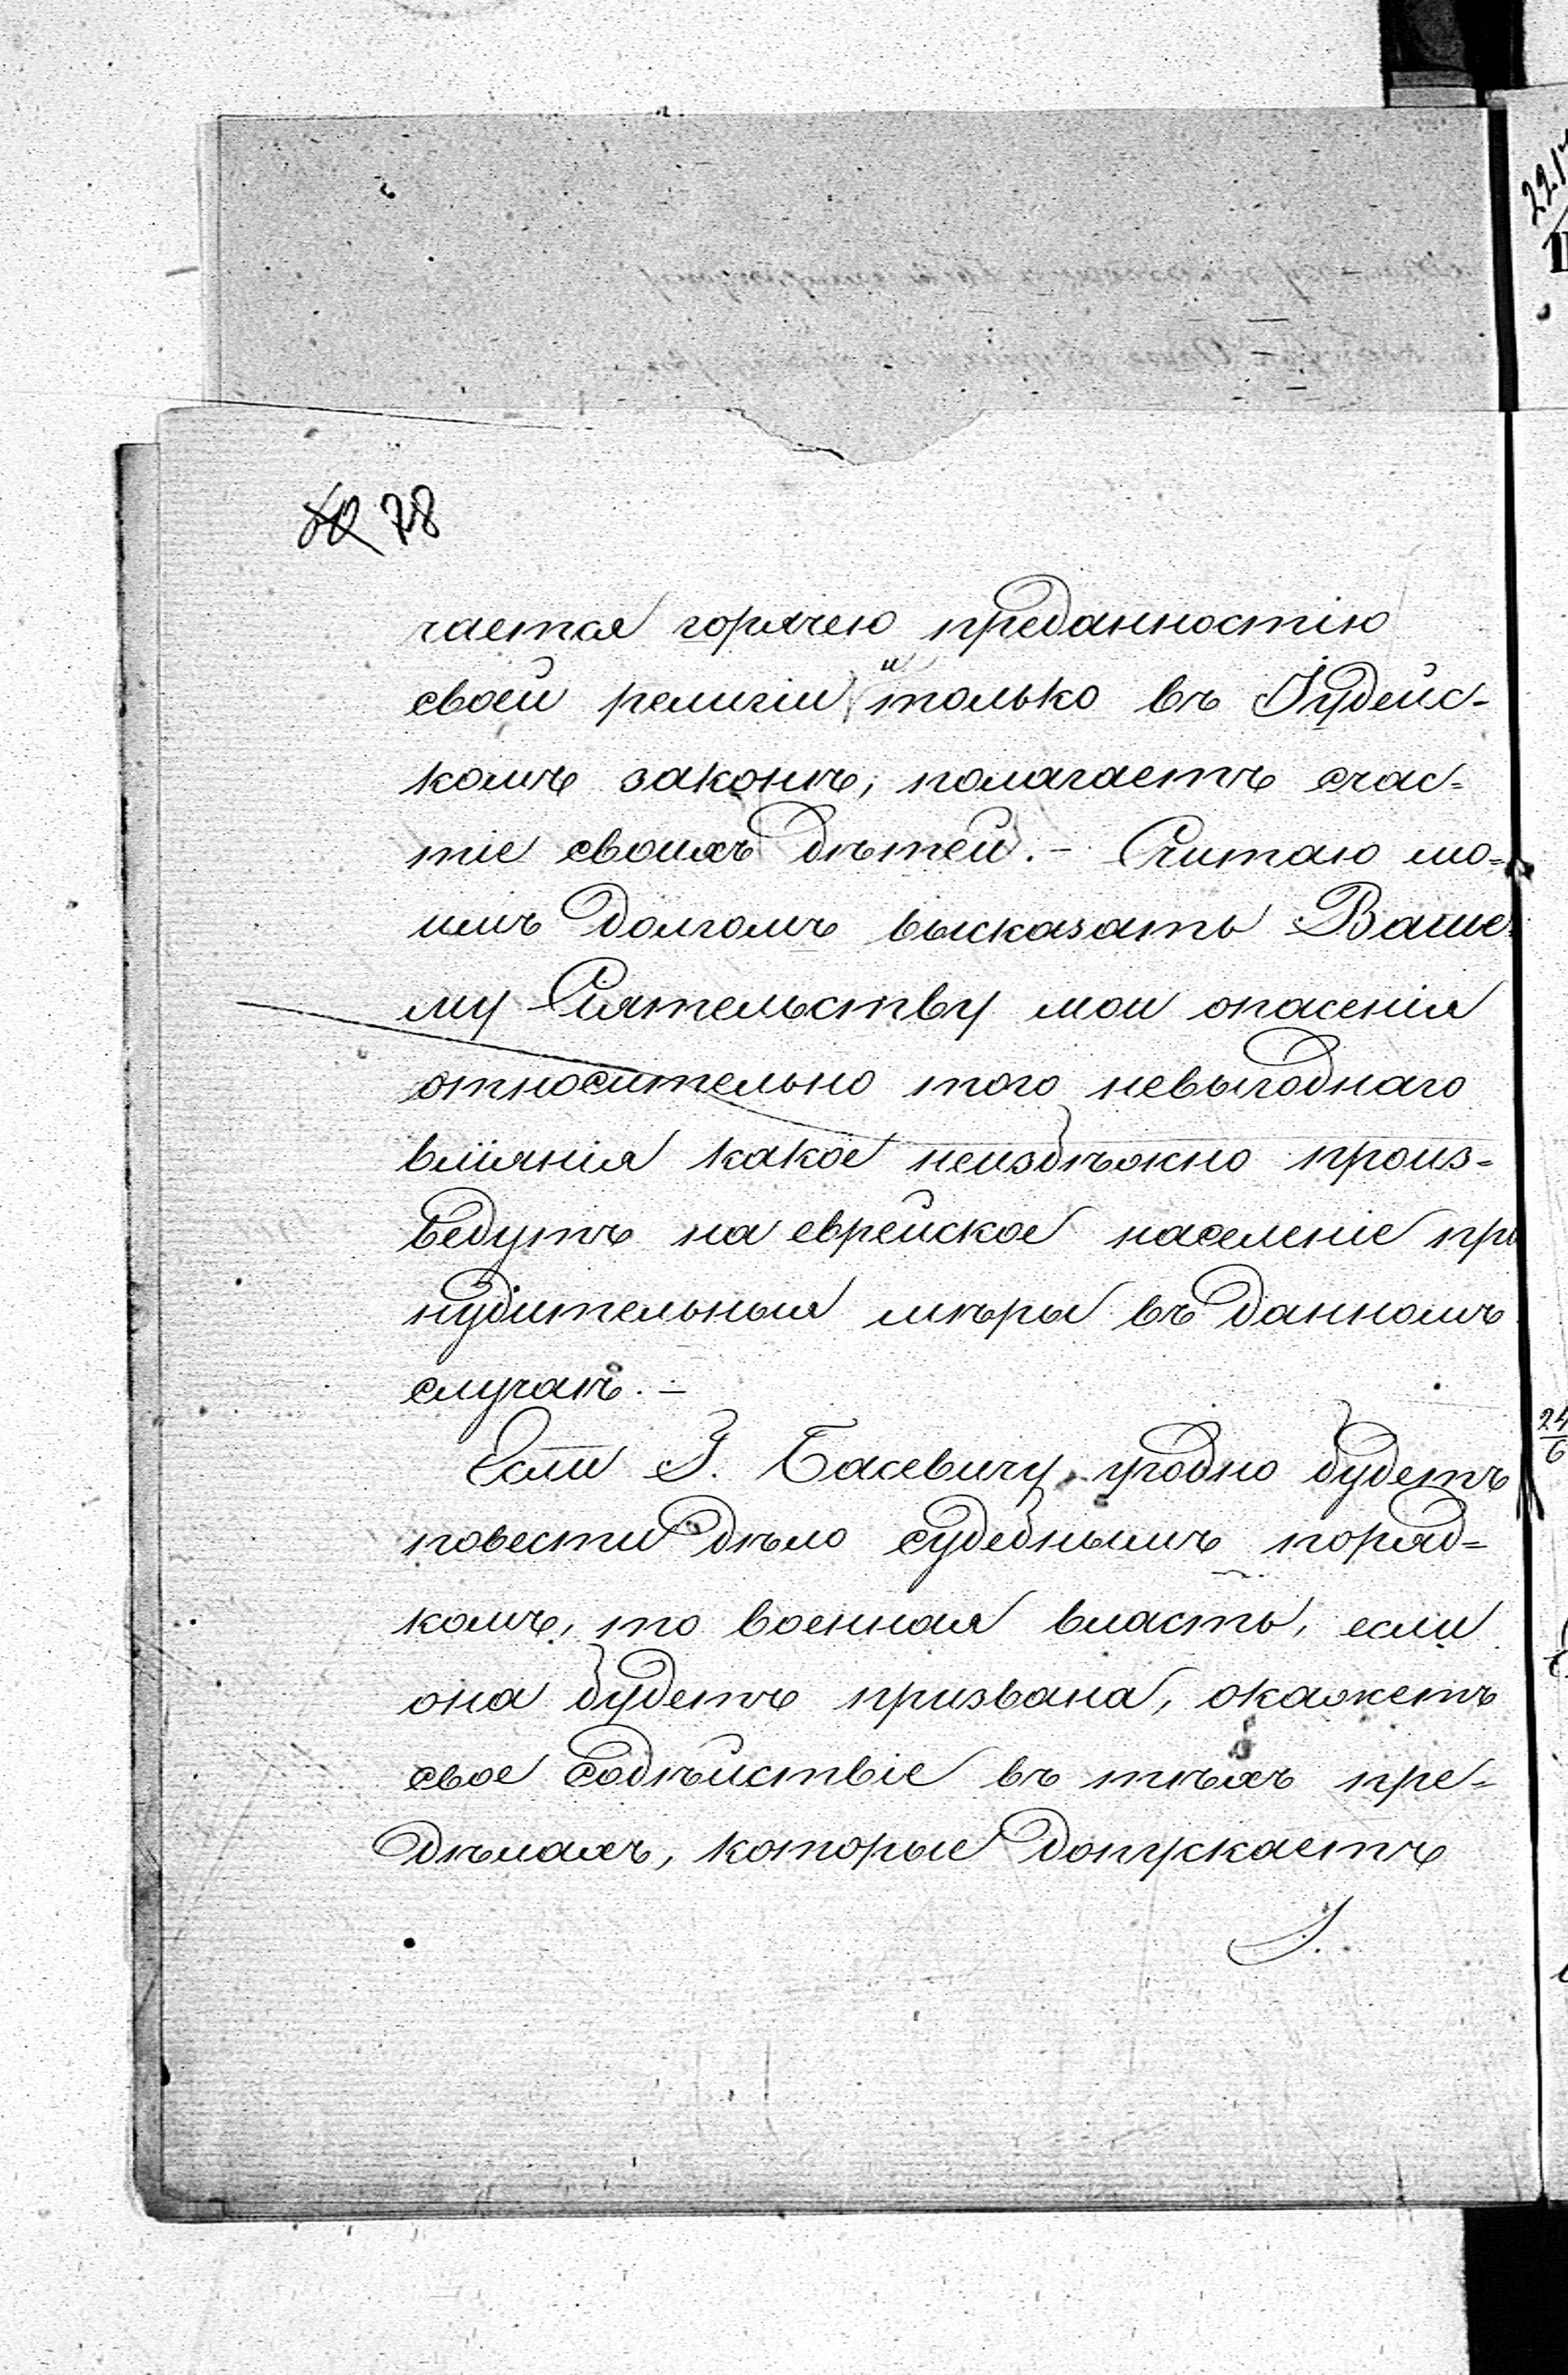 78
чается горячею преданностію
своей религіи и только въ Іудейс-
комъ законѣ, полагаетъ счас-
тіе своихъ дѣтей. - Считаю мо-
имъ долгомъ высказать Ваше
му Сіятельству мои опасенія
относительно того невыгоднаго
вліянія какое неизбѣжно произ-
ведутъ на еврейское населеніе при
нудительныя мѣры въ данномъ
случаѣ. -
Если З. Басевичу угодно будетъ
повести дѣло судебнымъ поряд-
комъ, то военная власть, если
она будетъ призвана, окажетъ
свое содѣйствіе въ тѣхъ пре-
дѣлахъ, которые допускаетъ